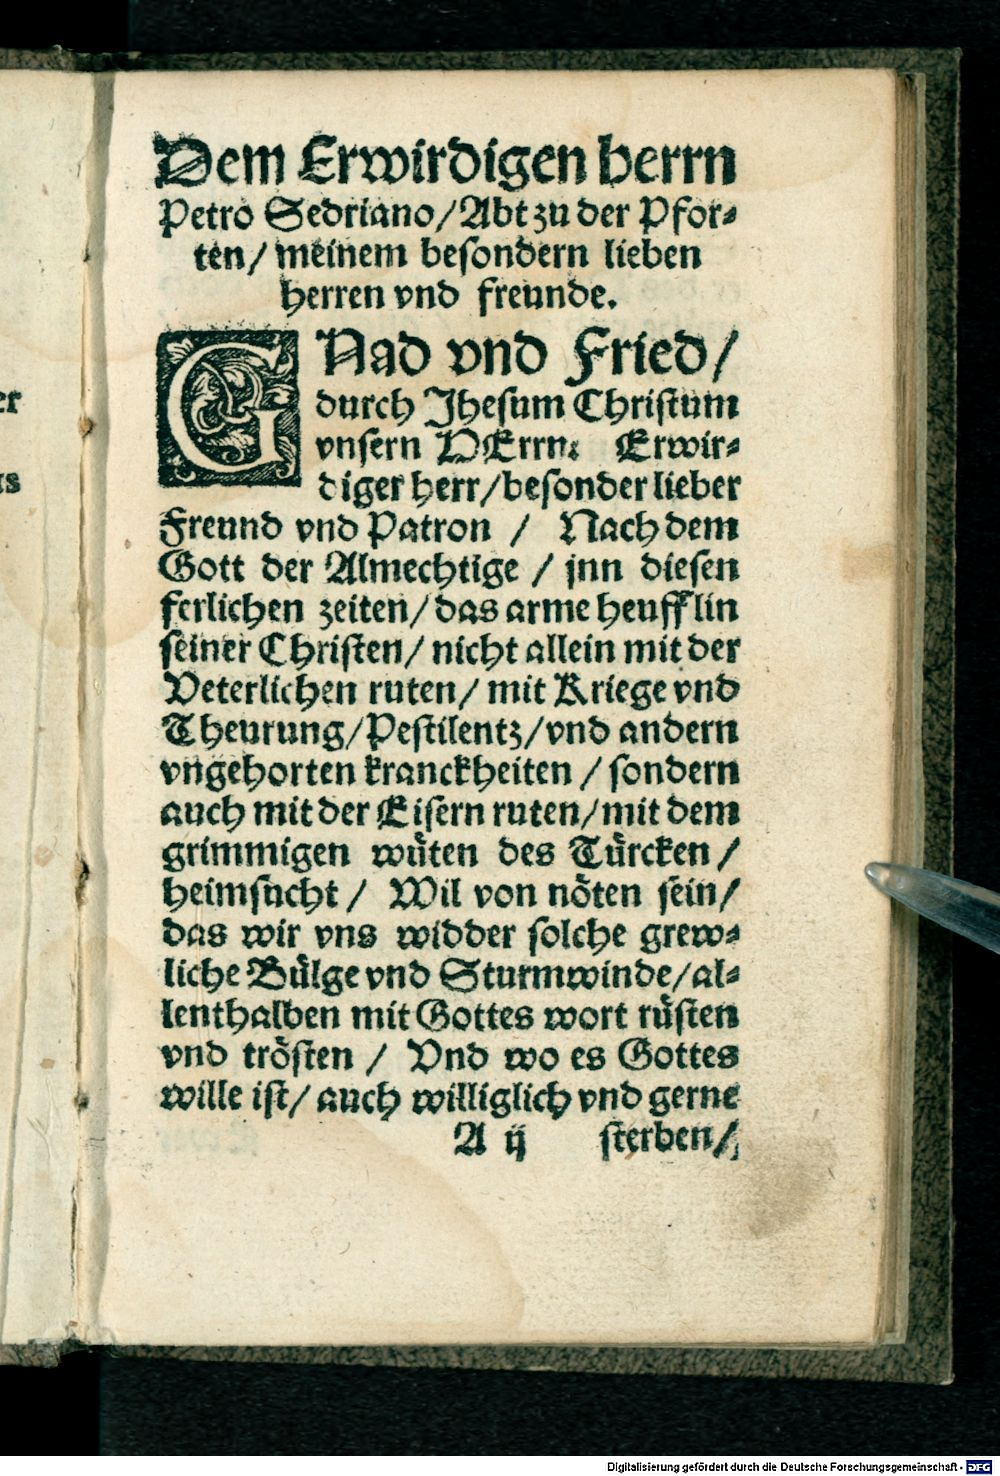 Dem Erwirdigen herrn
Petro Sedriano/Abt zu der Pfor⸗
ten/ meinem besondern lieben
herren vnd freunde.
GNad vnd Fried/
durch Jhesum Christum
vnsern HErrn. Erwir⸗
diger herr/besonder lieber
Freund vnd Patron / Nach dem
Gott der Almechtige / jnn diesen
ferlichen zeiten/das arme heufflin
seiner Christen/ nicht allein mit der
Veterlichen ruten/ mit Kriege vnd
Theurung/Pestilentz/vnd andern
vngehorten kranckheiten / sondern
auch mit der Eisern ruten/mit dem
grimmigen wüten des Türcken /
heimsucht / Wil von nöten sein/
das wir vns widder solche grew⸗
liche Bülge vnd Sturmwinde/al⸗
lenthalben mit Gottes wort rüsten
vnd trösten / Vnd wo es Gottes
wille ist/ auch williglich vnd gerne
A ij sterben/
er
us
Digitalisierung gefördert durch die Deutsche Forschungsgemeinschaft - DFG